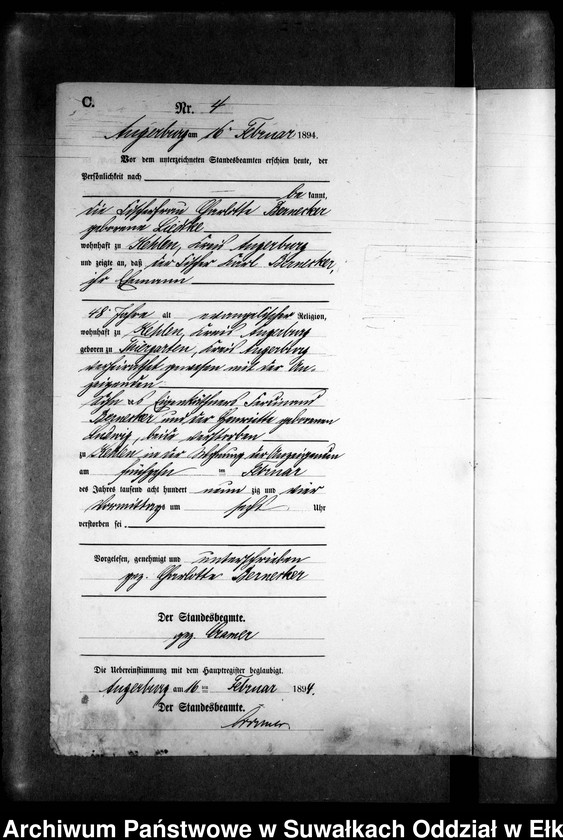 C.
Nr. 4
Angerburg am 16. Februar 1894.
Vor dem unterzeichneten Standesbeamten erschien heute, der
Persönlichkeit nach
be kannt,
die Fischerfrau Charlotte Bernecker
geborene Liedtke
wohnhaft zu Kehlen, Kreis Angerburg
und zeigte an, daß der Fischer Karl Bernecker,
ihr Ehemann
48 Jahre alt evangelischer Religion,
wohnhaft zu Kehlen, Kreis Angerburg
geboren zu Thiergarten, Kreis Angerburg
verheirathet gewesen mit der An-
zeigenden
Sohn des Eigenkäthners Ferdinand
Bernecker und der Henriette geborenen
Ludwig, beide verstorben
zu Kehlen, in der Wohnung der Anzeigenden
am fünfzehn ten Februar
des Jahres tausend acht hundert neun zig und vier
Vormittags um Uhr
verstorben sei.
Vorgelesen, genehmigt und unterschrieben
gez. Charlotte Bernecker
Der Standesbeamte.
gez. Cramer
Die Uebereinstimmung mit dem Hauptregister beglaubigt.
Angerburg am 16 ten Februar 1894.
Der Standesbeamte.
Cramer
Archiwum Państwowe w Suwałkach Oddział w Ełk